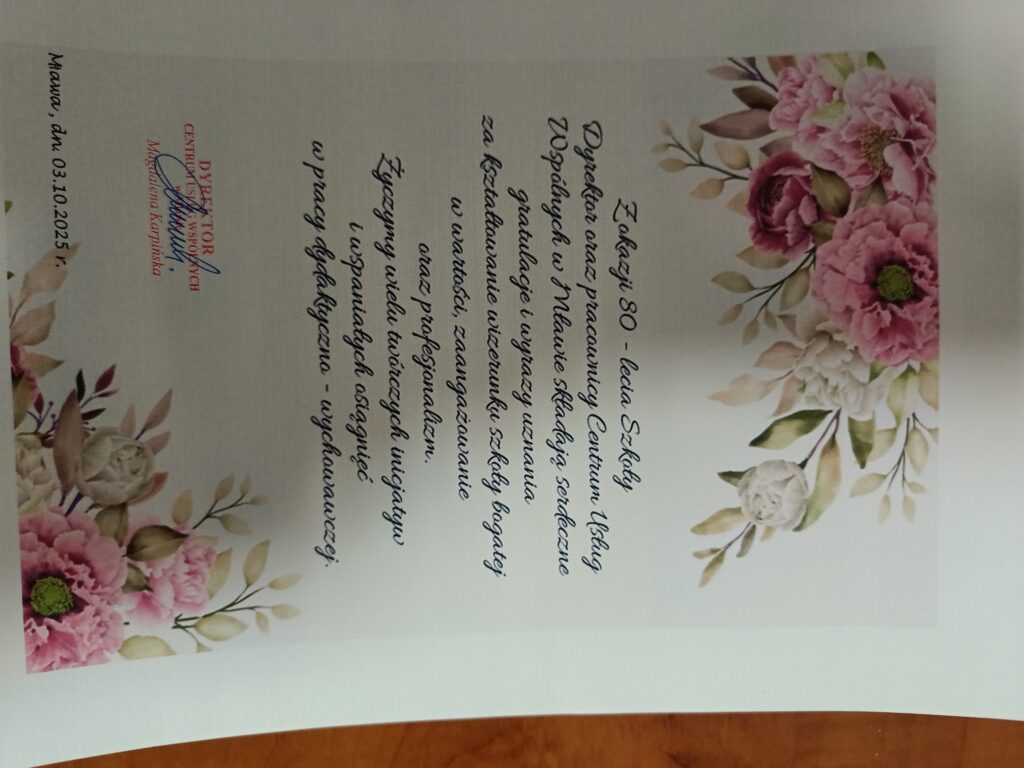 Z okazji 80 - lecia Szkoły
Dyrektor oraz pracownicy Centrum Usług
Wspólnych w Mławie składają serdeczne
gratulacje i wyrazy uznania
za kształtowanie wizerunku szkoły bogatej
w wartości, zaangażowanie
oraz profesjonalizm.
Życzymy wielu twórczych inicjatyw
i wspaniałych osiągnięć
w pracy dydaktyczno - wychowawczej.
DYREKTOR
CENTRUM USŁUG WSPÓLNYCH
Magdalena Karpińska
Mława, dn. 03.10.2025 r.